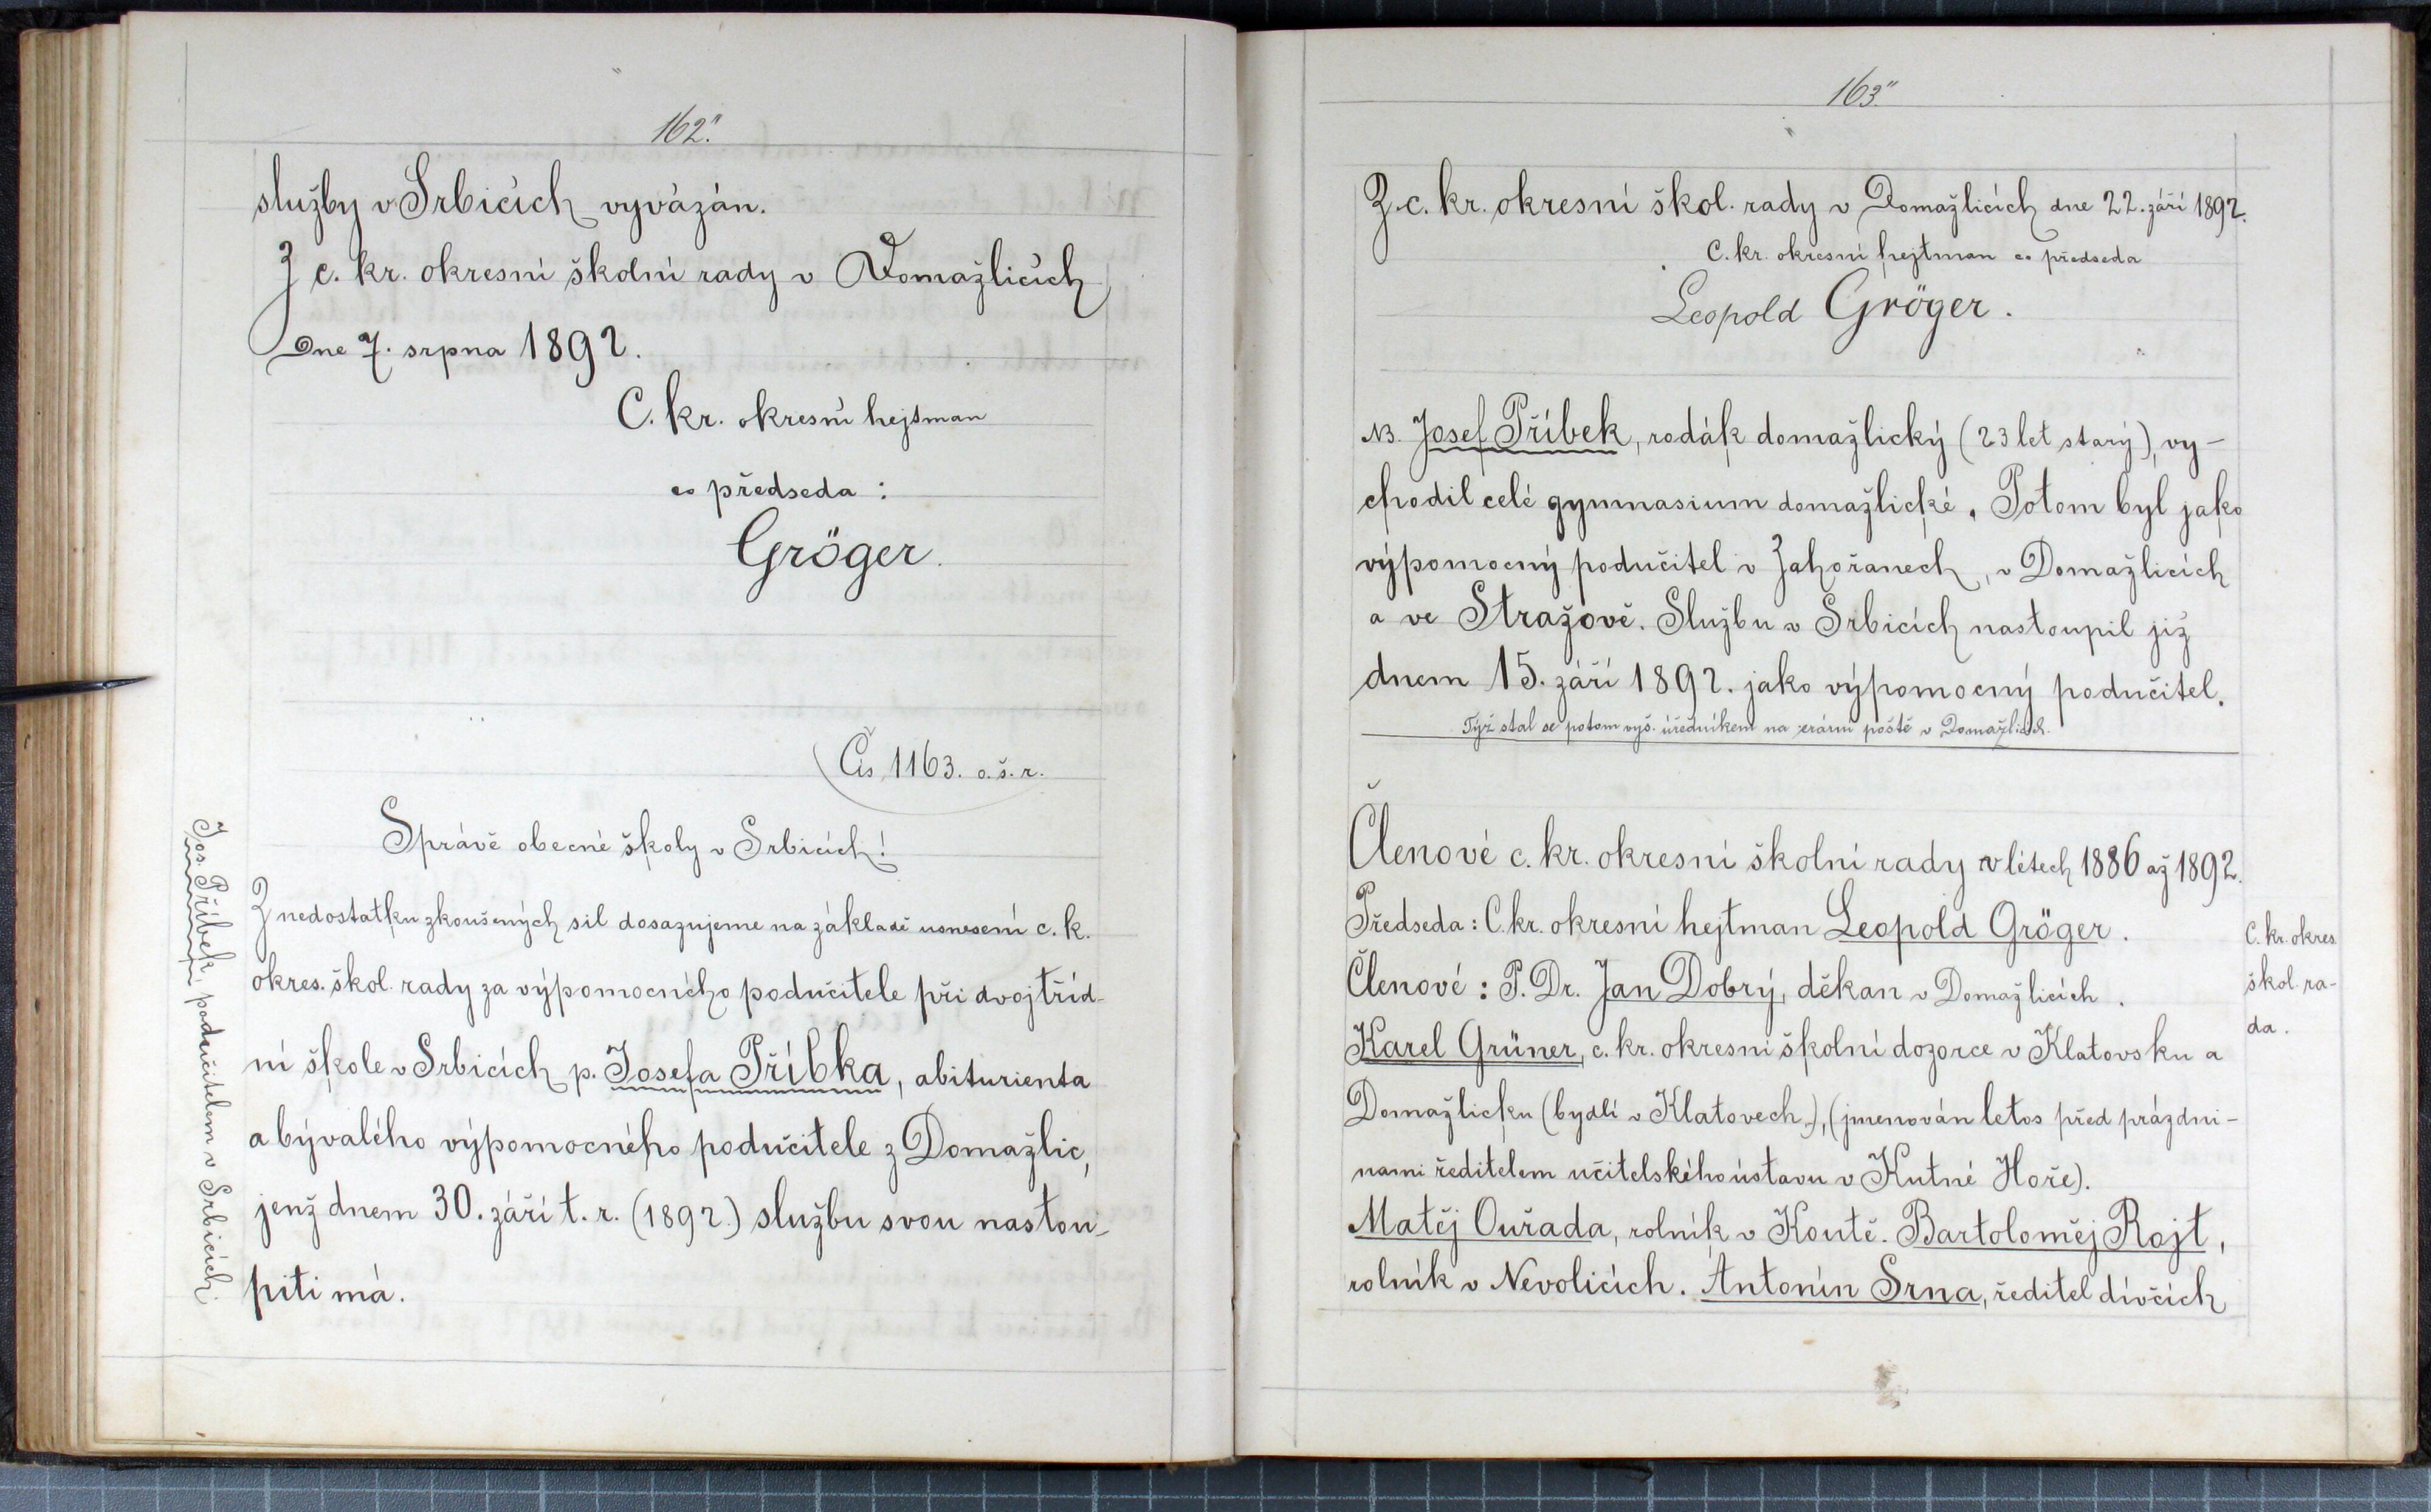 162.
služby v Srbicích vyvázán.
Z c. kr. okresní školní rady v Domažlicích
Dne 7. srpna 1892.
C. kr. okresní hejtman
co předseda :
Gröger.
Čís 1163. o. š. r.
Správě obecné školy v Srbicích!
Z nedostatku zkoušených sil dosazujeme na základě usnesení c. k.
okres. škol. rady za výpomocného podučitele při dvojtříd-
ní škole v Srbicích p. Josefa Příbka, abiturienta
a bývalého výpomocného podučitele z Domažlic,
jenž dnem 30. září t. r. (1892.) službu svou nastou-
piti má.
Jos. Příbek, podučitelem v Srbicích.
163.
Z c. kr. okresní škol. rady v Domažlicích dne 22. září 1892.
C. kr. okresní hejtman co předseda
Leopold Gröger.
NB. Josef Příbek, rodák domažlický (23 let starý), vy-
chodil celé gymnasium domažlické. Potom byl jako
výpomocný podučitel v Zahořanech, v Domažlicích
a ve Stražově. Službu v Srbicích nastoupil již
dnem 15. září 1892. jako výpomocný podučitel.
Týž stal se potom vyš. úředníkem na erární poště v Domažlicích.
Členové c. kr. okresní školní rady v létech 1886 až 1892.
Předseda: C. kr. okresní hejtman Leopold Gröger.
Členové : P. Dr. Jan Dobrý, děkan v Domažlicích.
Karel Grüner, c. kr. okresní školní dozorce v Klatovsku a
Domažlicku (bydlí v Klatovech.), (jmenován letos před prázdni-
nami ředitelem učitelského ústavu v Kutné Hoře).
Matěj Ouřada, rolník v Koutě. Bartoloměj Rojt,
rolník v Nevolicích. Antonín Srna, ředitel dívčích
C. kr. okres.
škol. ra-
da.